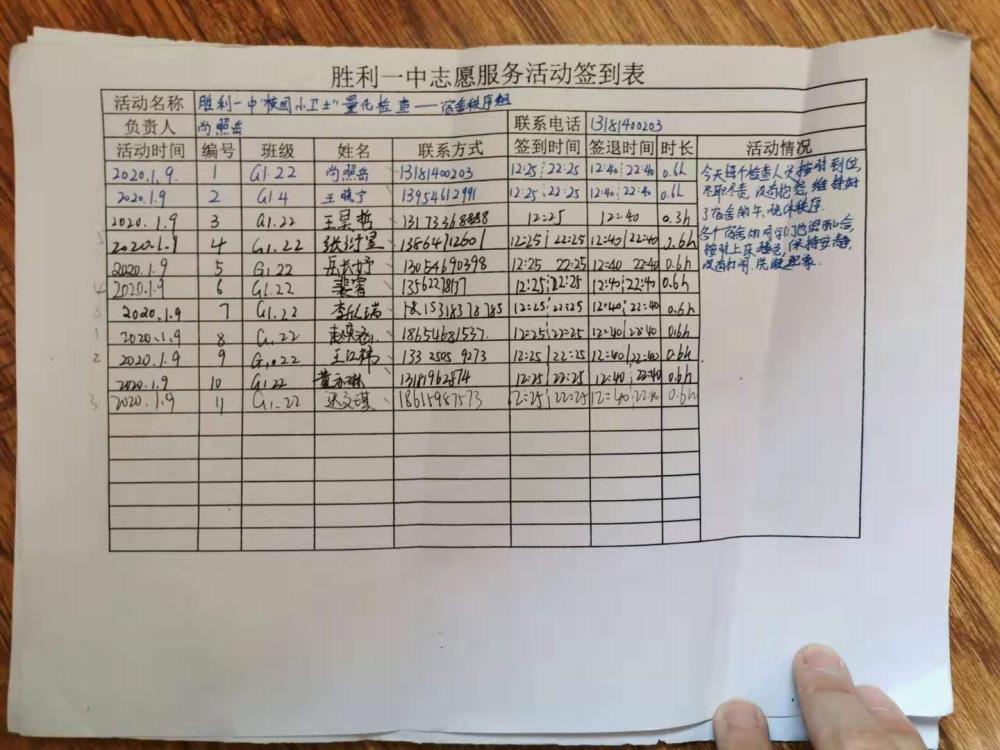 胜利一中志愿服务活动签到表
活动名称 胜利一中"校园小卫士"量化检查——宿舍秩序组
负责人 尚照岳 联系电话 13181400203
活动时间 编号 班级 姓名 联系方式 签到时间 签退时间 时长 活动情况
2020.1.9. 1 G1.22 尚照岳 13181400203 12:25 22:25 12:40 22:40 0.6h
2020.1.9 2 G1.4 王晓宁 13954612991 12:25 22:25 12:40 22:40 0.6h
2020.1.9 3 G1.22 王昊哲 13173368888 12:25 12:40 0.3h
2020.1.9 4 G1.22 12:25 22:25 12:40 22:40 0.6h
2020.1.9 5 G1.22 岳长妤 13054690398 12:25 22:25 12:40 22:40 0.6h
2020.1.9 6 G1.22 裴睿 12:25 22:25 12:40 22:40 0.6h
2020.1.9 7 G1.22 12:25 22:25 12:40 22:40 0.6h
2020.1.9 8 G1.22 18654681537 12:25 22:25 12:40 22:40 0.6h
2020.1.9 9 G1.22 133 2505 9273 12:25 22:25 12:40 22:40 0.6h
2020.1.9 10 G1.22 13181962874 12:25 22:25 12:40 22:40 0.6h
2020.1.9 11 G1.22 18615987573 12:25 22:25 12:40 22:40 0.6h
今天每个检查人员按时到位,
尽职尽责,没有抱怨,维持好
了宿舍的午,晚休秩序.
各个宿舍的同学们也积极配合,
按时上床睡觉,保持安静,
没有打闹,洗漱现象.